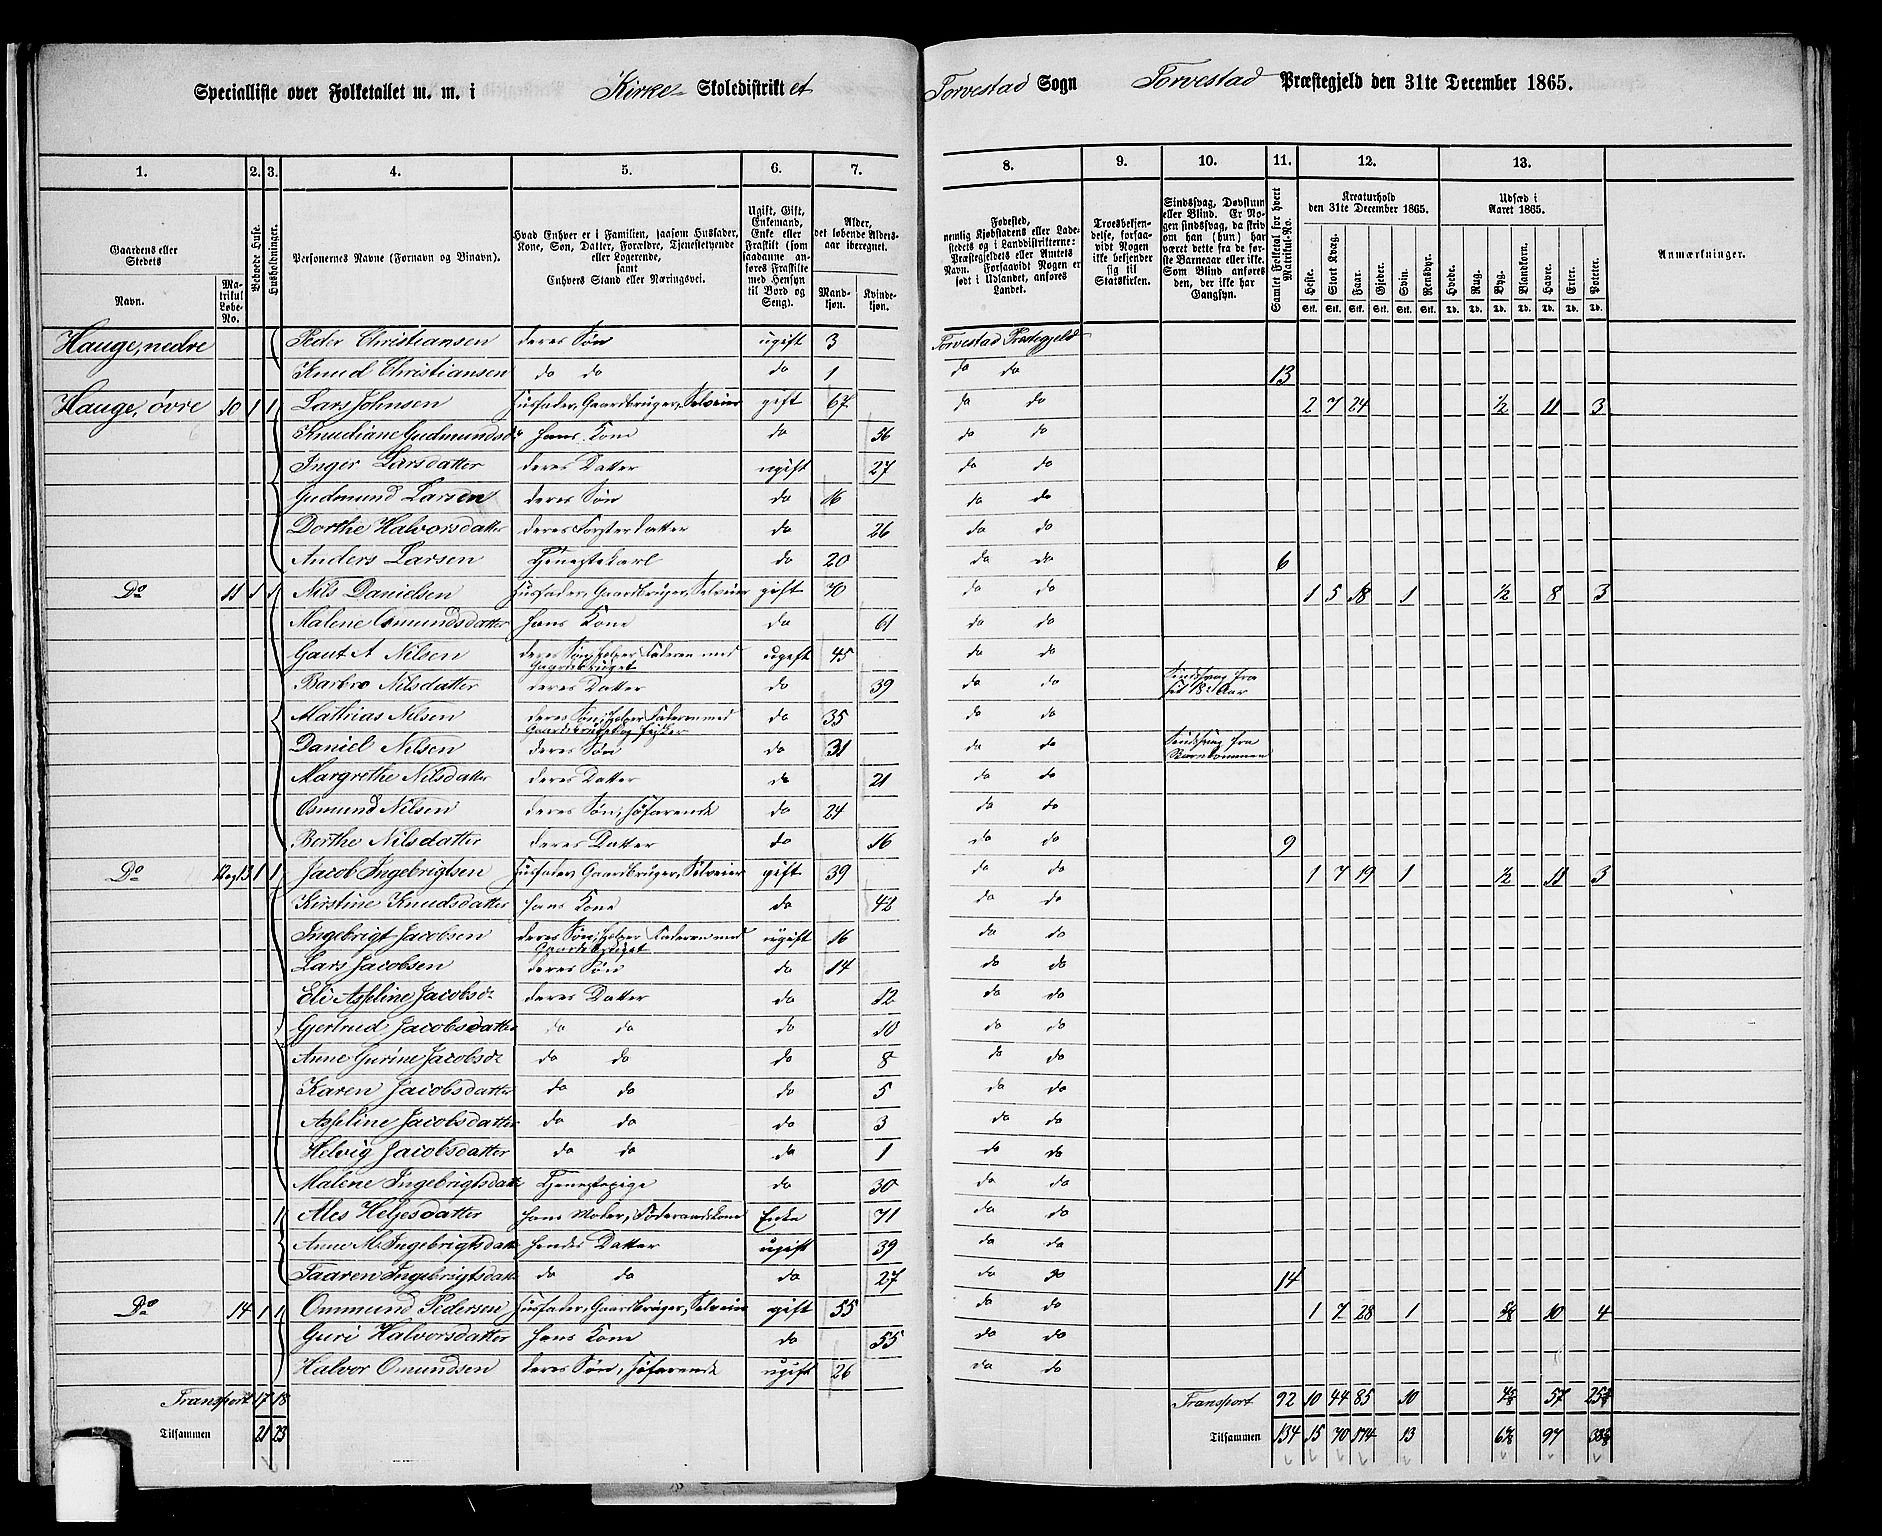 Specialliste over Folketallet m. m. i Kirke Skoledistriktet Torvestad Sogn Torvestad Præstegjeld den 31te December 1865.
1. 2. 3. 4. 5. 6. 7. 8. 9. 10. 11. 12. 13.
Gaardens eller Stedets Navn.
Matrikul Løbe-No.
Beboede Huse.
Husholdninger.
Personernes Navne (Fornavn og Binavn).
Hvad Enhver er i Familien, saasom Husfader, Kone, Søn, Datter, Forældre, Tjenestetyende eller Logerende, samt Enhvers Stand eller Næringsvei.
Ugift, Gift, Enkemand, Enke eller Fraskilt (som saadanne anføres Fraskilte med Hensyn til Bord og Seng).
Alder, det løbende Aldersaar iberegnet.
Mandkjøn. Kvindekjøn.
Fødested, nemlig Kjøbstadens eller Ladestedets og i Landdistrikterne: Præstegjeldets eller Amtets Navn. Forsaavidt Nogen er født i Udlandet, anføres Landet.
Troesbekjendelse, forsaavidt Nogen ikke bekjender sig til Statskirken.
Sindssvag, Døvstum eller Blind. Er Nogen sindssvag, da skrives om han (hun) har været dette fra de første Barneaar eller ikke. Som Blind anføres den, der ikke har Gangsyn.
Samlet Folketal for hvert Matrikul-No.
Kreaturhold den 31te December 1865.
Heste. Stort Kvæg. Faar. Gjeder. Svin. Rensdyr.
Udsæd i Aaret 1865.
Hvede. Rug. Byg. Blandkorn. Havre. Erter. Poteter.
Anmærkninger.
Hauge, nedre Peder Christiansen deres Søn ugift 3 Torvestad Præstegjeld
Knud Christiansen do do do 1 do do 13
Hauge, øvre 10 1 1 Lars Johnsen Husfader, Gaardbruger, Selveier gift 67 do do 2 7 24 1/2 11 3
Knudiane Gudmundsd. hans Kone do 56 do do
Inger Larsdatter deres Datter ugift 27 do do
Gudmund Larsen deres Søn do 16 do do
Dorthe Halvorsdatter deres Fosterdatter do 26 do do
Anders Larsen Tjenestekarl do 20 do do 6
Do 11 1 1 Nils Danielsen Husfader, Gaardbruger, Selveier gift 70 do do 1 5 18 1 1/2 8 3
Malene Osmundsdatter hans Kone do 61 do do
Gaut A Nilsen deres Søn, hjelper Faderen med Gaardsbruget ugift 45 do do
Barbro Nilsdatter deres Datter do 39 do do Sindssvag fra sit 18de Aar
Mathias Nilsen deres Søn, hjelper Faderen med Gaardsbruget og fisker do 35 do do
Daniel Nilsen deres Søn do 31 do do Sindssvag fra Barndommen
Margrethe Nilsdatter deres Datter do 21 do do
Osmund Nilsen deres Søn, Søfarende do 24 do do
Berthe Nilsdatter deres Datter do 16 do do 9
Do 12 og 13 1 1 Jacob Ingebrigtsen Husfader, Gaardbruger, Selveier gift 39 do do 1 7 19 1 1/2 11 3
Kirstine Knudsdatter hans Kone do 42 do do
Ingebrigt Jacobsen deres Søn, hjelper Faderen med Gaardsbruget ugift 16 do do
Lars Jacobsen deres Søn do 14 do do
Eli Asseline Jacobsd. deres Datter do 12 do do
Gjertrud Jacobsdatter do do do 10 do do
Anne Gurine Jacobsd. do do do 8 do do
Karen Jacobsdatter do do do 5 do do
Asseline Jacobsdatter do do do 3 do do
Helvig Jacobsdatter do do do 1 do do
Malene Ingebrigtsdatt. Tjenestepige do 30 do do
1 Ales Helgesdatter hans Moder, Føderaadskone Enke 71 do do
Anne M. Ingebrigtsdatt. hendes Datter ugift 39 do do
Taaren Ingebrigtsdatt. do do do 27 do do 14
Do 14 1 1 Ommund Pedersen Husfader, Gaardbruger, Selveier gift 55 do do 1 7 28 1 5/8 10 4
Guri Halvorsdatter hans Kone do 55 do do
Halvor Omundsen deres Søn, Søfarende ugift 26 do do
Transport 17 18 Transport 92 10 44 85 10 57
Tilsammen 21 23 Tilsammen 134 15 70 174 13 97